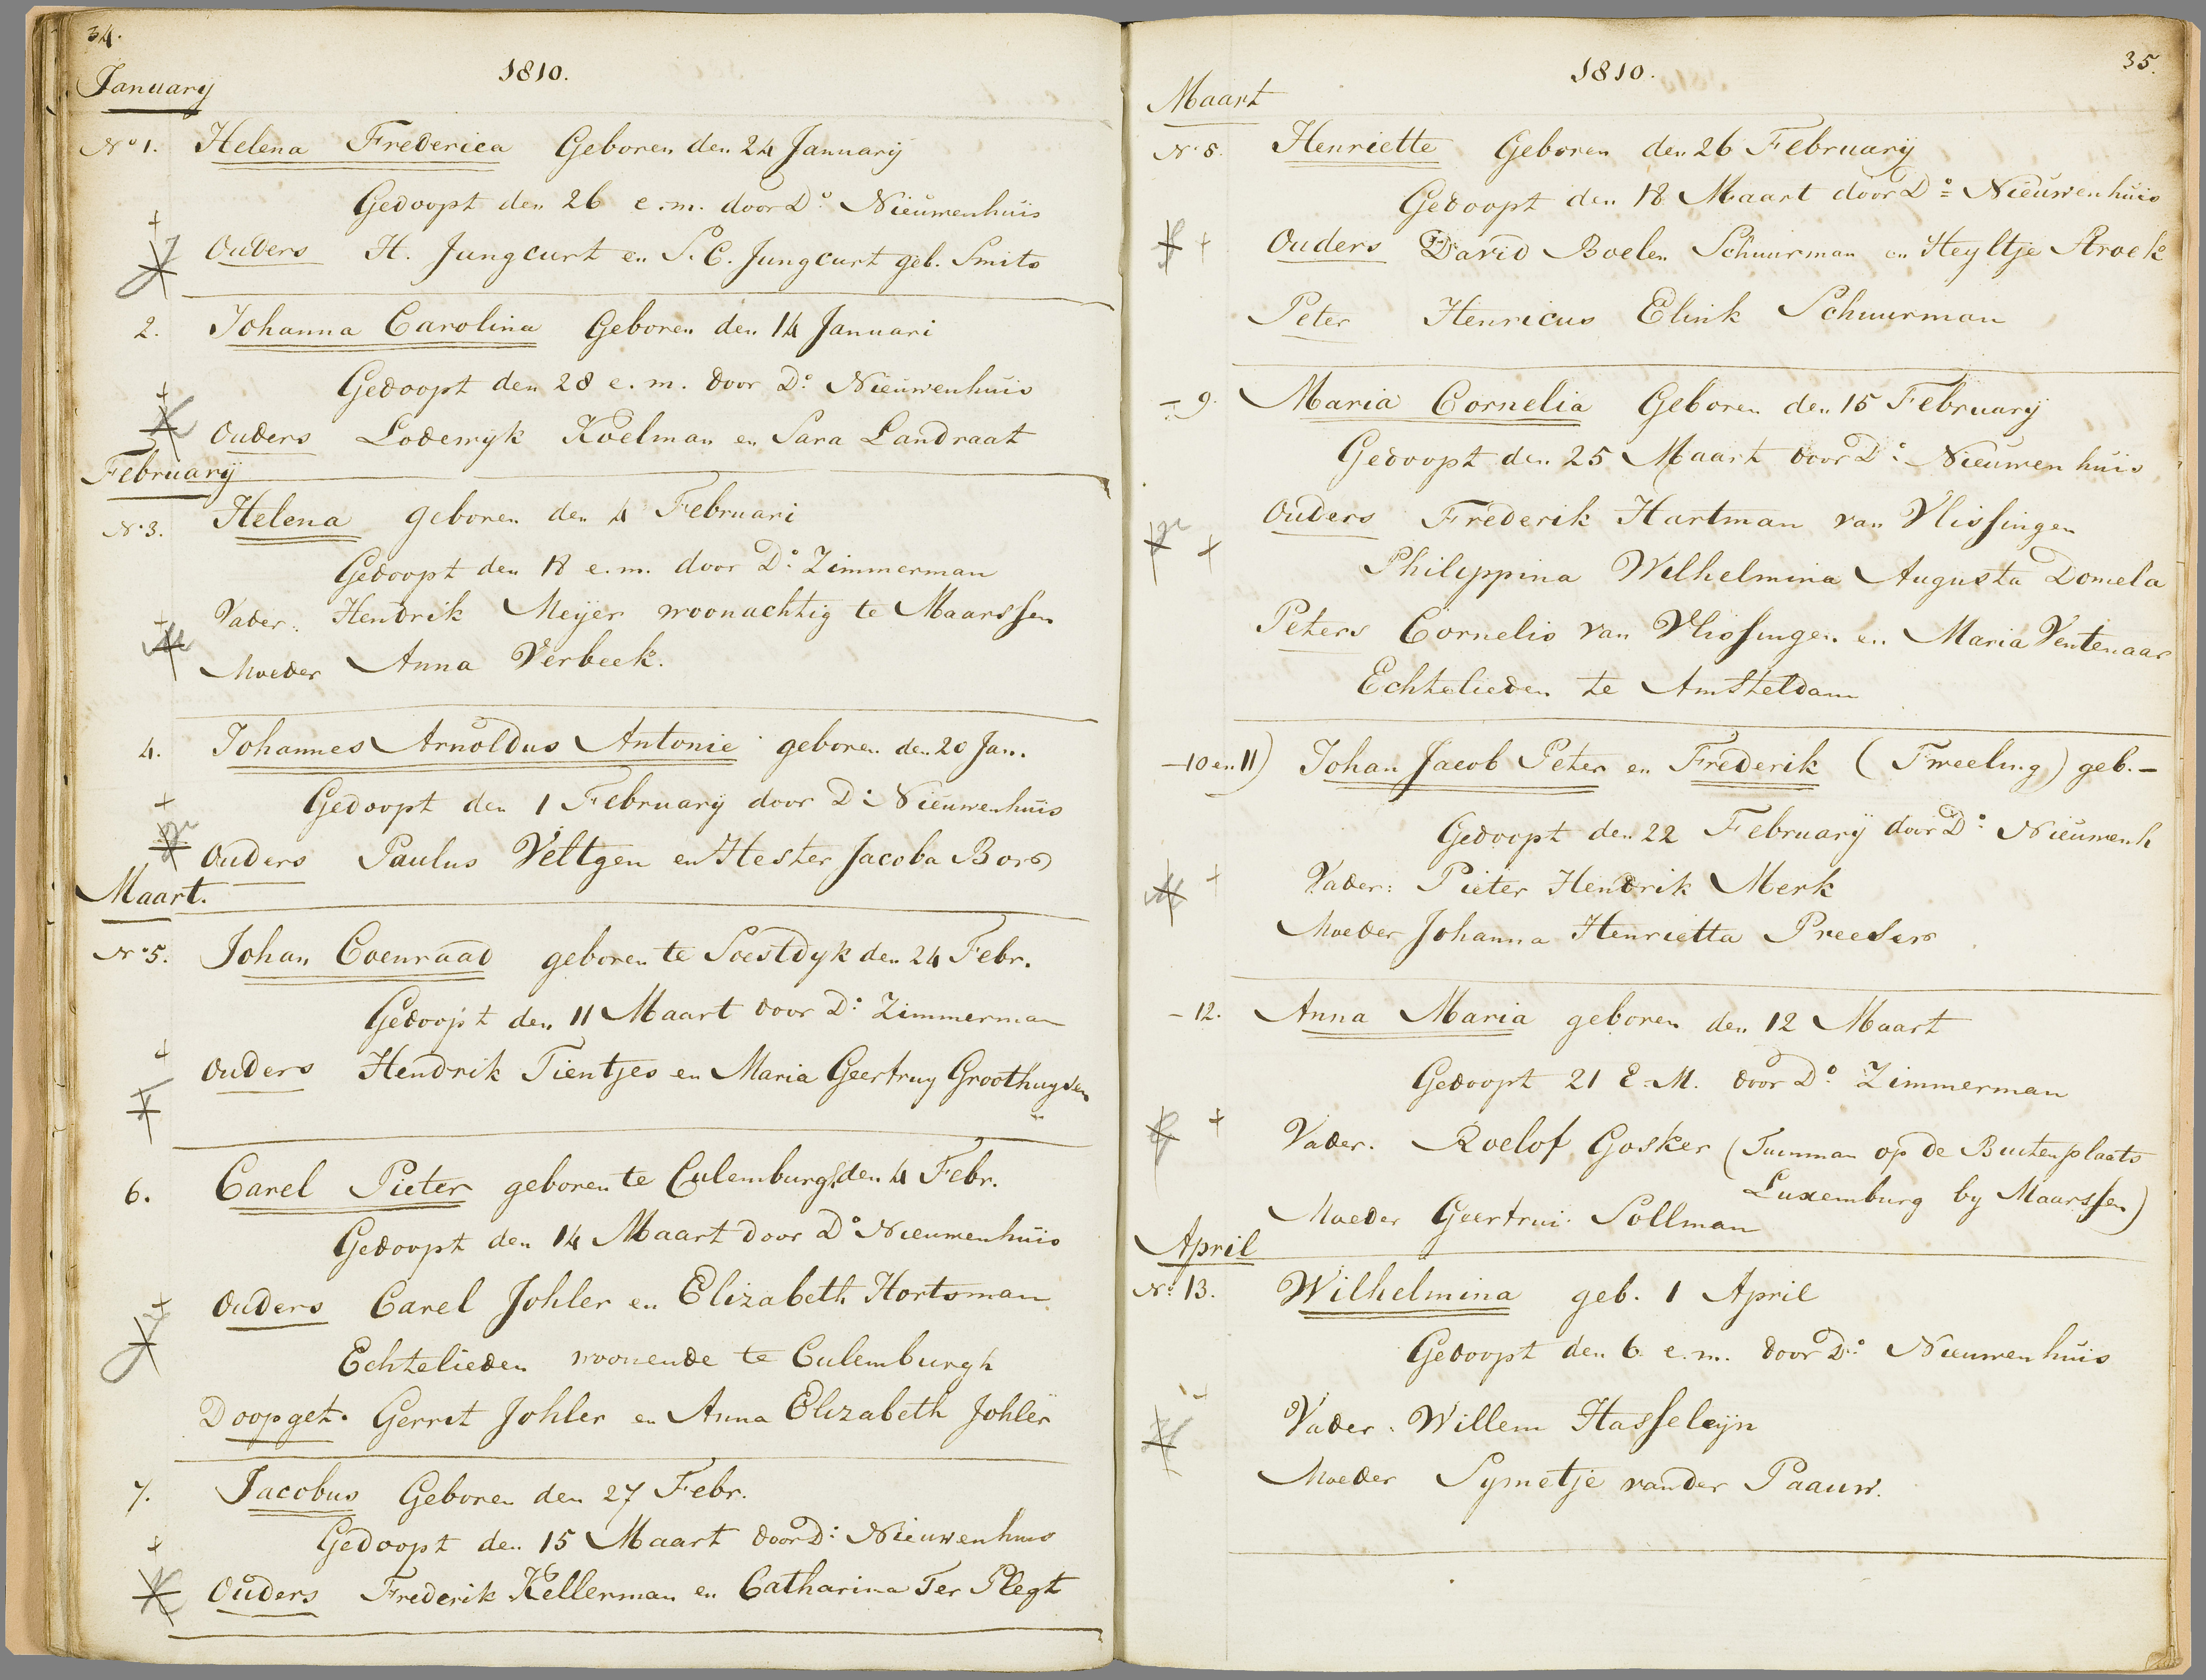 34.
1810.
January
No 1. Helena Frederica Geboren den 24 January
Gedoopt den 26 e.m. door Do Nieuwenhuis
Ouders H. Jungcurt en S.C. Jungcurt geb. Smits
2. Johanna Carolina Geboren den 14 Januari
Gedoopt den 28 e.m. door Do Nieuwenhuis
Ouders Lodewyk Koelman en Sara Landraat
February
No 3. Helena geboren den 4 Februari
Gedoopt den 18 e.m. door Do Zimmerman
Vader: Hendrik Meijer woonachtig te Maarssen
Moeder Anna Verbeek.
4. Johannes Arnoldus Antonie geboren den 20 Jan.
Gedoopt den 1 February door D: Nieuwenhuis
Ouders Paulus Veltgen en Hester Jacoba Bors
Maart.
No 5. Johan Coenraad geboren te Soestdyk den 24 Febr.
Gedoopt den 11 Maart door D: Zimmerman
Ouders Hendrik Tientjes en Maria Geertruy Groothuysen
6. Carel Pieter geboren te Culemburgh den 4 Febr.
Gedoopt den 14 Maart door Do Nieuwenhuis
Ouders Carel Johler en Elizabeth Hortsman
Echtelieden woonende te Culemburgh
Doopget. Gerret Johler en Anna Elizabeth Johler
7. Jacobus Geboren den 27 Febr.
Gedoopt den 15 Maart door D: Nieuwenhuis
Ouders Frederik Kellerman en Catharina Ter Plegt
1810.
35.
Maart
No 8. Henriette Geboren den 26 February
Gedoopt den 18 Maart door Do Nieuwenhuis
Ouders David Boelen Schuurman en Heyltje
Peter Henricus Elink Schuurman
- 9. Maria Cornelia Geboren den 15 February
Gedoopt den 25 Maart door D: Nieuwenhuis
Ouders Frederik Hartman van Vlissingen
Philippina Wilhelmina Augusta Domela
Peters Cornelis van Vlissingen en Maria Ventenaar
Echtelieden te Amsteldam
- 10 en 11) Johan Jacob Peter en Frederik (Tweeling) geb. -
Gedoopt den 22 February door D: Nieuwenh
Vader: Pieter Hendrik Merk
Moeder Johanna Henrietta
- 12. Anna Maria geboren den 12 Maart
Gedoopt 21 E.M. door Do Zimmerman
Vader. Roelof Gosker (Tuinman op de Buitenplaats
Luxemburg by Maarssen)
Moeder Geertrui Sollman
April
No 13. Wilhelmina geb. 1 April
Gedoopt den 6 e.m. door D: Nieuwenhuis
Vader: Willem Hasseleijn
Moeder Symetje vander Paauw.